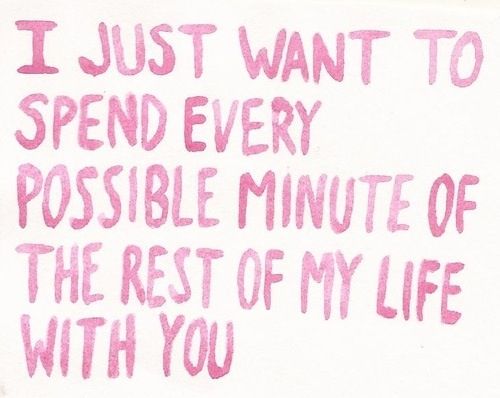 I JUST WANT TO
SPEND EVERY
POSSIBLE MINUTE OF
THE REST OF MY LIFE
WITH YOU